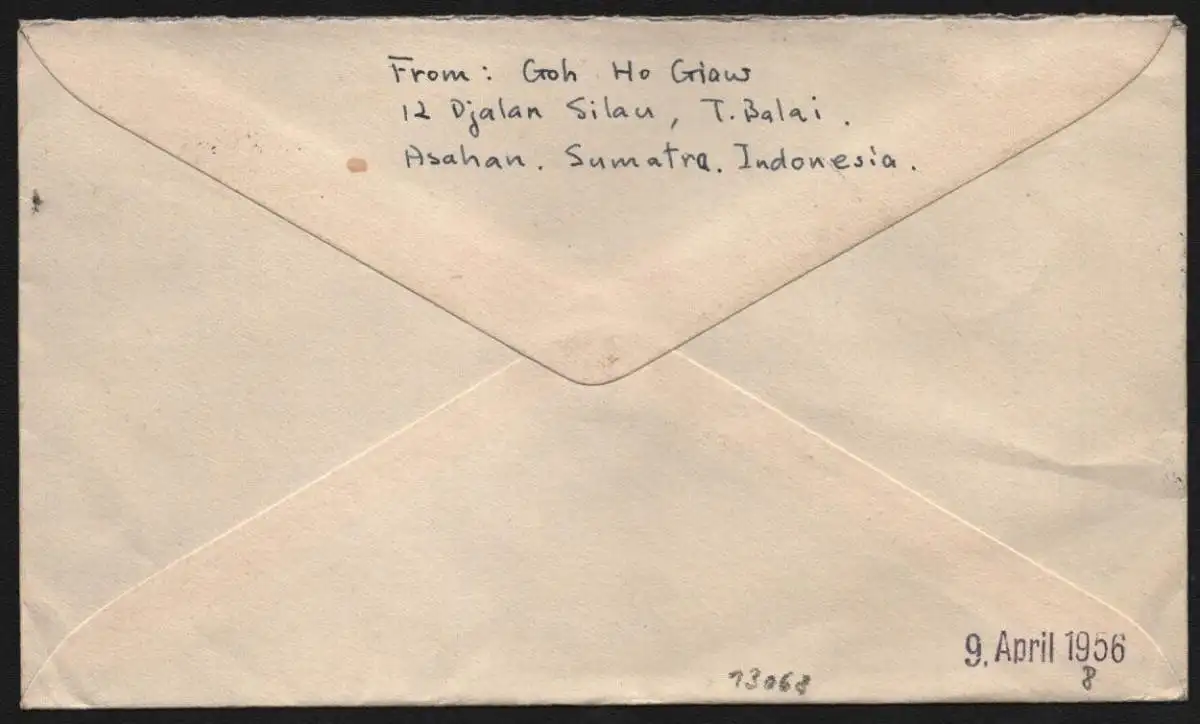 From: Goh Ho Giaw
12 Djalan Silau, T. Balai.
Asahan. Sumatra. Indonesia.
9. April 1956
13068
8